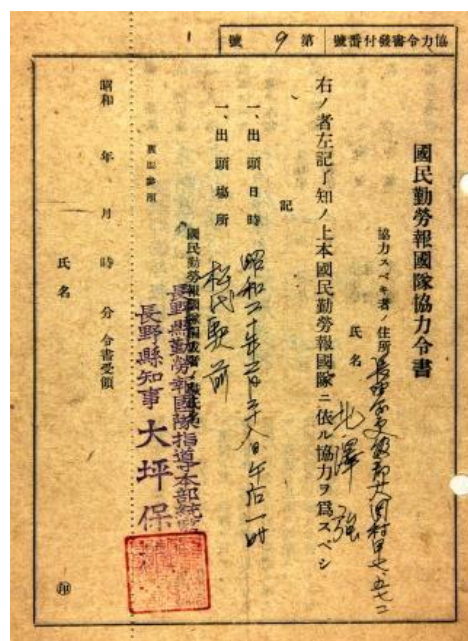 協力令書發付番號 第 9 號
國民勤勞報國隊協力令書
協力スベキ者ノ住所 長野縣更級郡大岡村甲七、五七二
氏名 北澤 強
右ノ者左記了知ノ上本國民勤勞報國隊ニ依ル協力ヲ爲スベシ
記
一、出頭日時 昭和二十年二月二十八日午后一時
一、出頭場所 松代駅前
國民勤勞報國隊
長野縣勤勞報國隊指導本部統監
長野縣知事 大坪保
裏面參照
昭和 年 月 時 分 令書受領
氏名 印